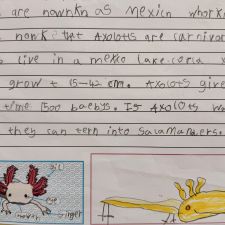 are nownkn as Mexicn whork
nonk that AXOlotls are carnivor
live in a mexco lake. coria
grow + 15-42 cm. AXOlotls give
time 1500 baebys. If AXOlots w
they can tern into Salamanders.
gil
eye
mouth
finger